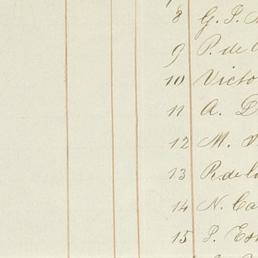 8 G. J.
9 P. de
10 Victo
11 A. D
12 M. V
13 R. de la
14 N. Ca
15 J. Es